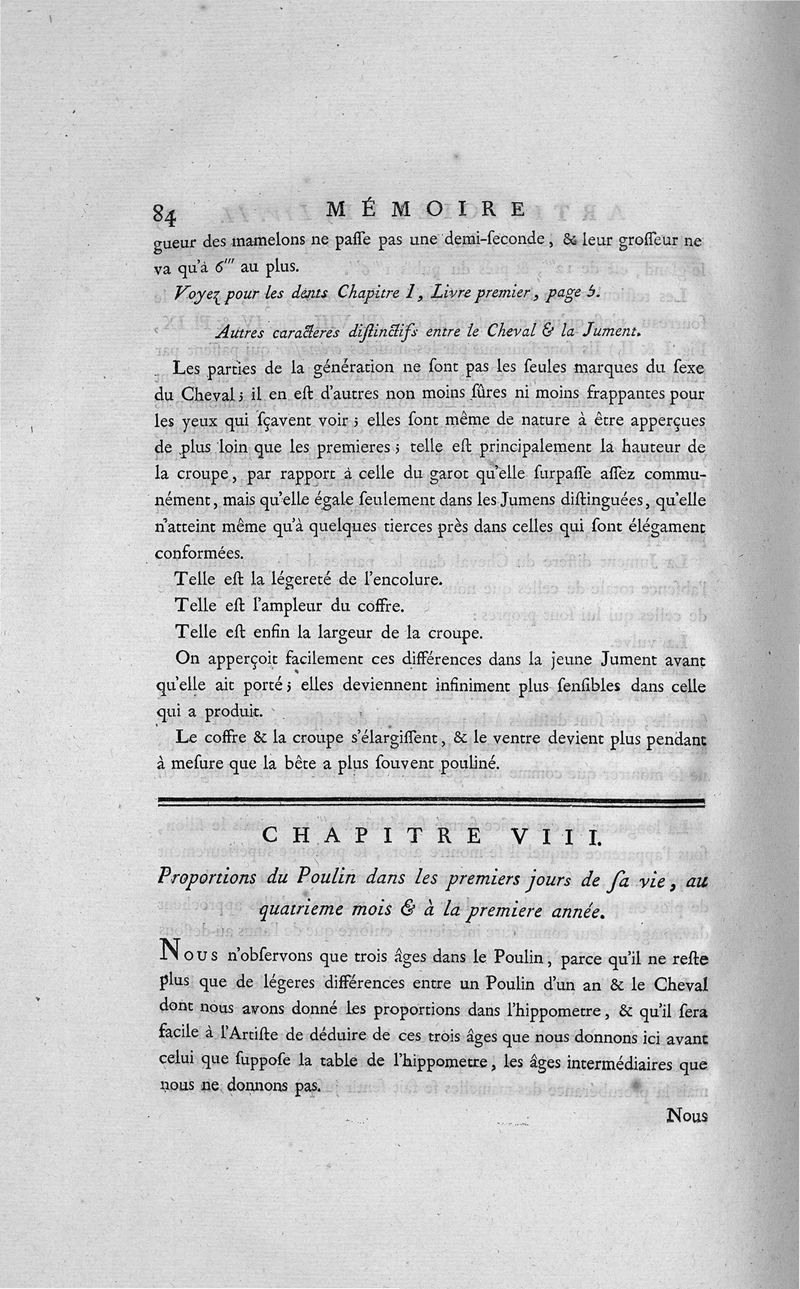 84 MÉMOIRE
gueur des mamelons ne paſſe pas une demi-ſeconde, & leur groſſeur ne
va qu'à 6''' au plus.
Voyez pour les dents Chapitre I, Livre premier, page 5.
Autres caracteres diſtinctifs entre le Cheval & la Jument.
Les parties de la génération ne ſont pas les ſeules marques du ſexe
du Cheval; il en eſt d'autres non moins ſûres ni moins frappantes pour
les yeux qui ſçavent voir; elles ſont même de nature à être apperçues
de plus loin que les premieres; telle eſt principalement la hauteur de
la croupe, par rapport à celle du garot qu'elle ſurpaſſe aſſez commu-
nément, mais qu'elle égale ſeulement dans les Jumens diſtinguées, qu'elle
n'atteint même qu'à quelques tierces près dans celles qui ſont élégament
conformées.
Telle eſt la légereté de l'encolure.
Telle eſt l'ampleur du coffre.
Telle eſt enfin la largeur de la croupe.
On apperçoit facilement ces différences dans la jeune Jument avant
qu'elle ait porté; elles deviennent infiniment plus ſenſibles dans celle
qui a produit.
Le coffre & la croupe s'élargiſſent, & le ventre devient plus pendant
à meſure que la bête a plus ſouvent pouliné.
CHAPITRE VIII.
Proportions du Poulin dans les premiers jours de ſa vie, au
quatrieme mois & à la premiere année.
Nous n'obſervons que trois âges dans le Poulin, parce qu'il ne reſte
plus que de légeres différences entre un Poulin d'un an & le Cheval
dont nous avons donné les proportions dans l'hippometre, & qu'il ſera
facile à l'Artiſte de déduire de ces trois âges que nous donnons ici avant
celui que ſuppoſe la table de l'hippometre, les âges intermédiaires que
nous ne donnons pas.
Nous